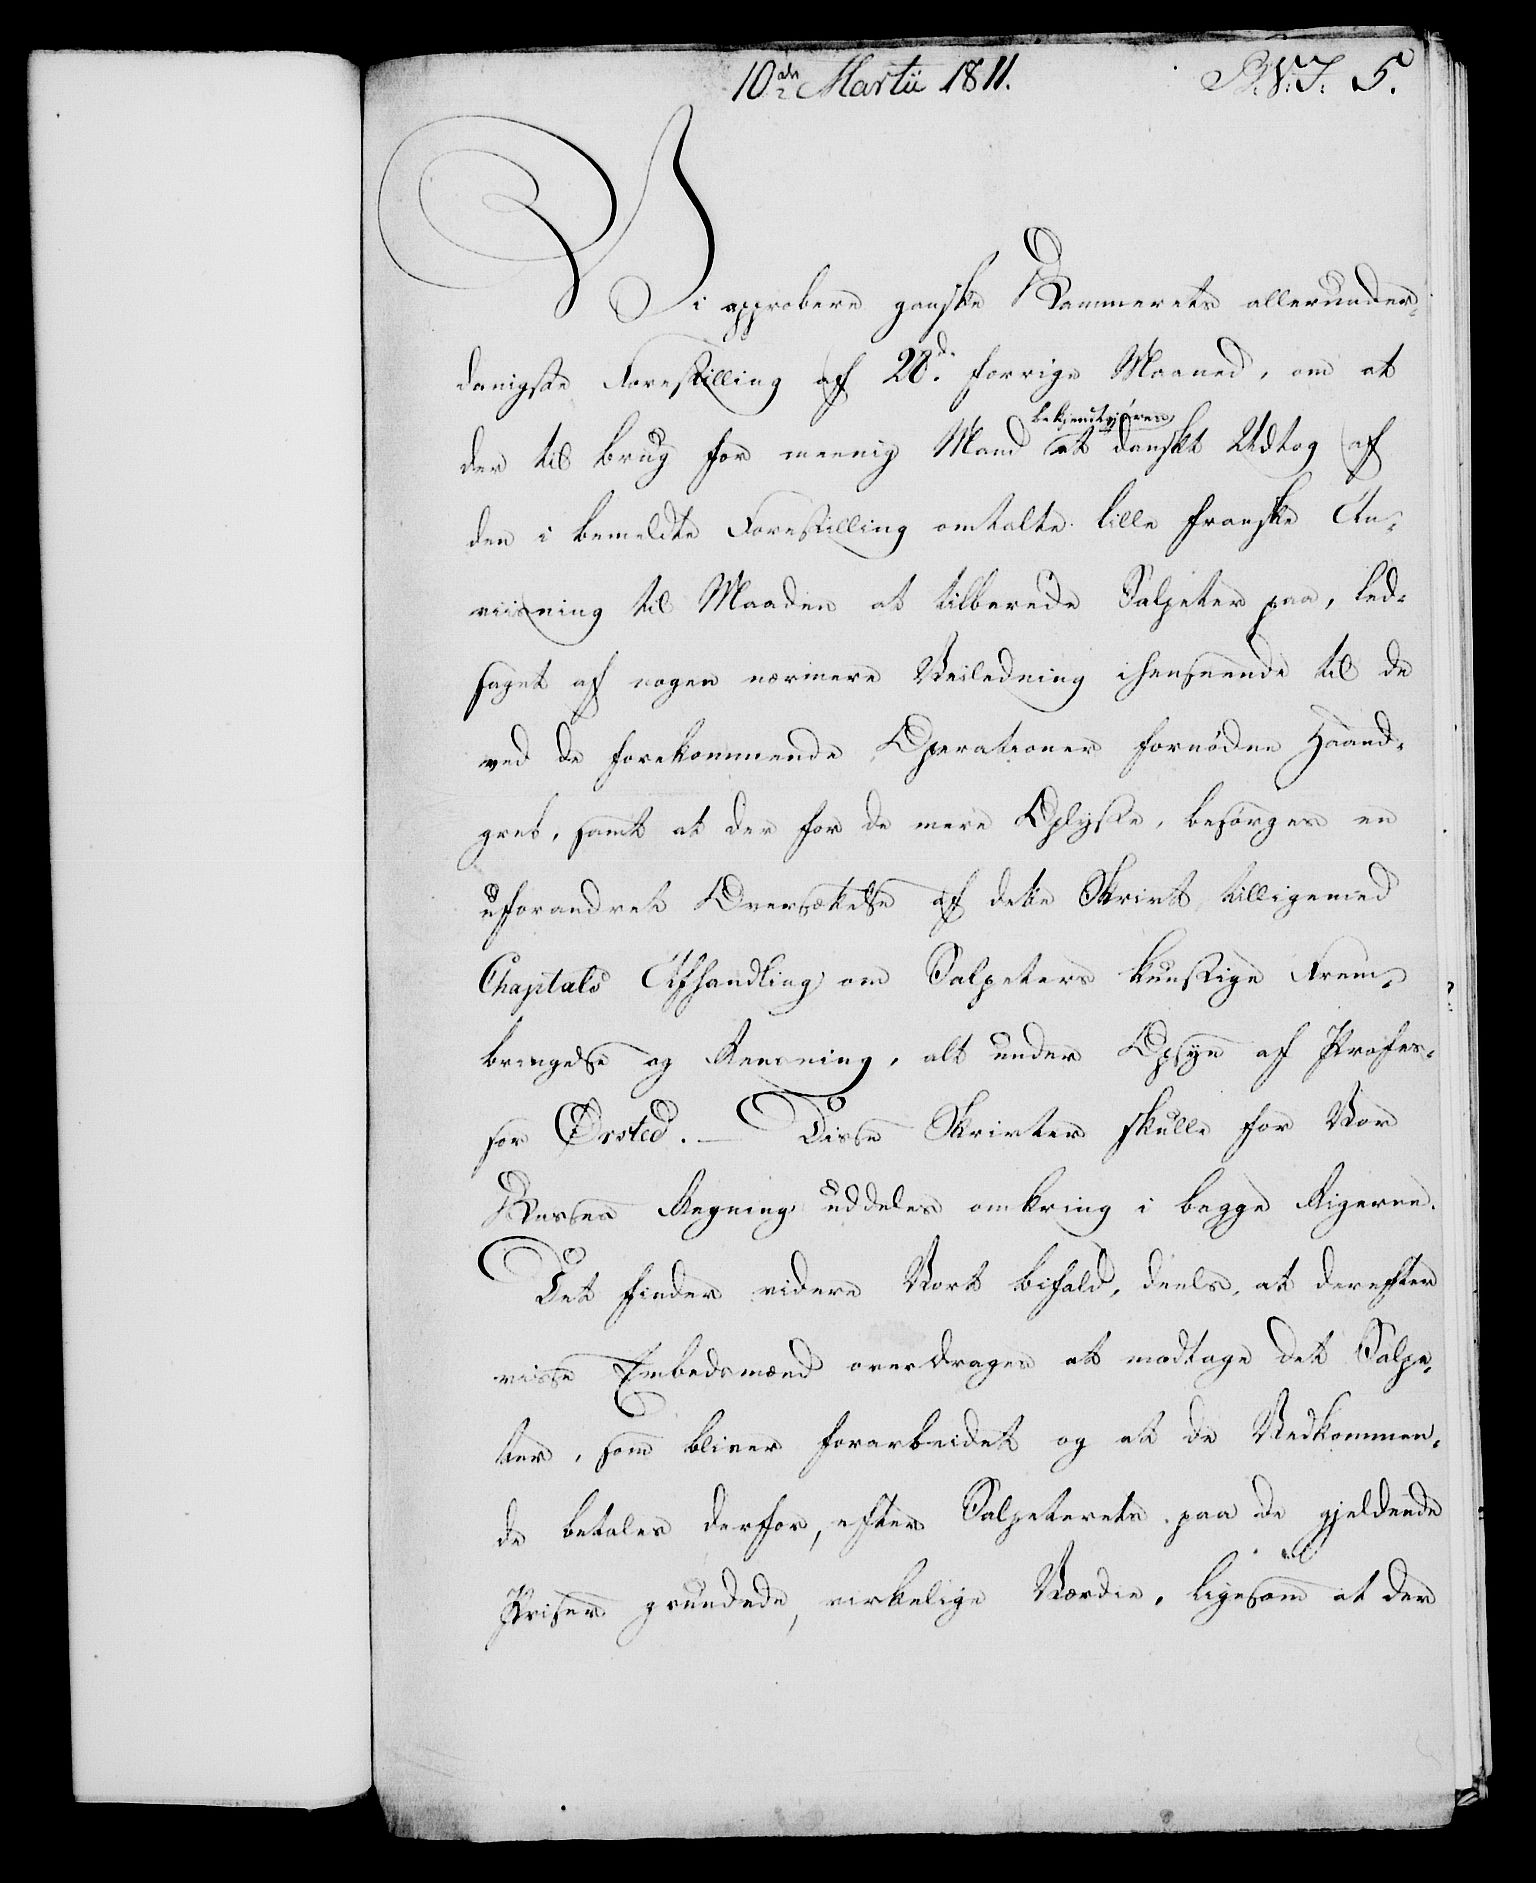 10de Martii 1811.
R:V:T: 5.
Vi approbere ganske Kammerets allerunder-
danigste Forestilling af 28d. forrige Maaned, om at
bekjendtgjöres
der til Brug for meenig Mand et danskt Udtog af
den i bemeldte Forestilling omtalte lille franske An-
viisning til Maaden at tilberede Salpeter paa, led-
saget af nogen nærmere Veiledning ihenseende til de
ved de forekommende Operationer fornødne Haand-
greb, samt at der for de mere Oplyste, besørges en
uforandret Oversættelse af dette Skrivt tilligemed
Chaptals Afhandling om Salpeters kunstige Frem-
bringelse og Rensning, alt under Opsyn af Profes-
sor Ørsted. — Disse Skrivter skulle for Vor
Kasses Regning uddeles omkring i begge Rigerne.
Det finder videre Vort Bifald, deels, at derefter
visse Embedsmænd overdrages at modtage det Salpe-
ter, som bliver forarbeidet og at de Vedkommen-
de betales derfor, efter Salpeterets paa de gjeldende
Priser grundede, virkelige Værdie, ligesom at der